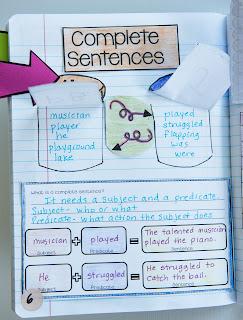 Complete
Sentences
musician
player
he
playground
lake
played
struggled
flapping
was
were
What is a complete sentence?
It needs a Subject and a predicate.
Subject- who or what
Predicate- what action the Subject does
musician + played = The talented musician
played the piano.
Subject Predicate Sentence
He + struggled = He struggled to
catch the ball.
Subject Predicate Sentence
6